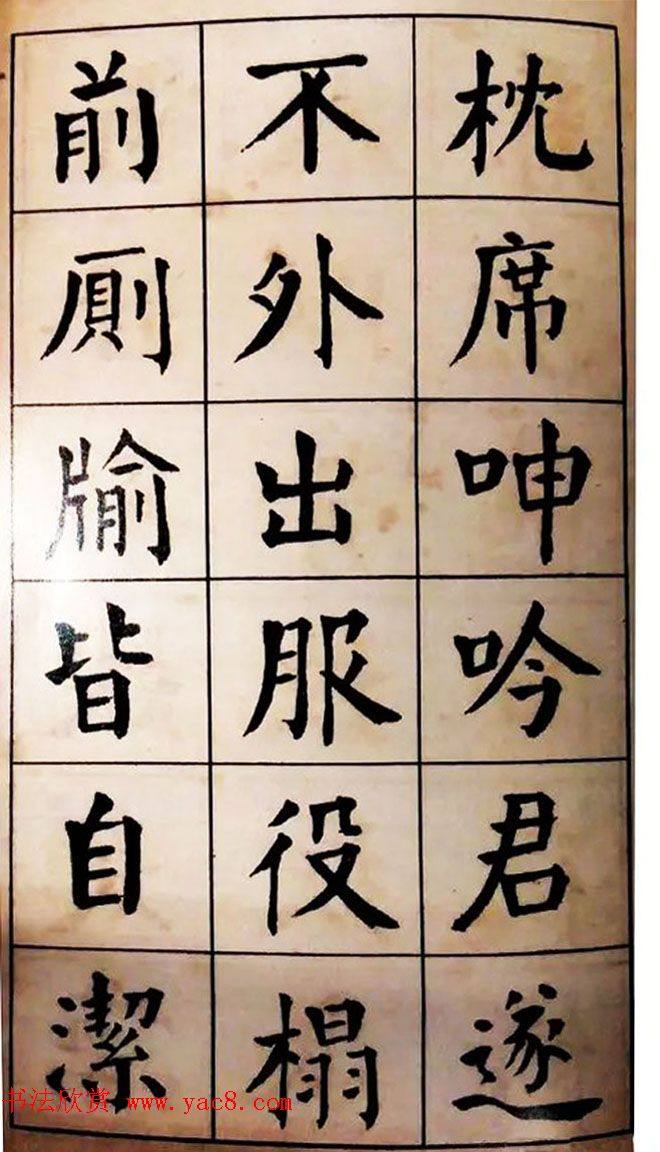 枕席呻吟君遂
不外出服役榻
前厠牏皆自潔
书法欣赏 www.yac8.com